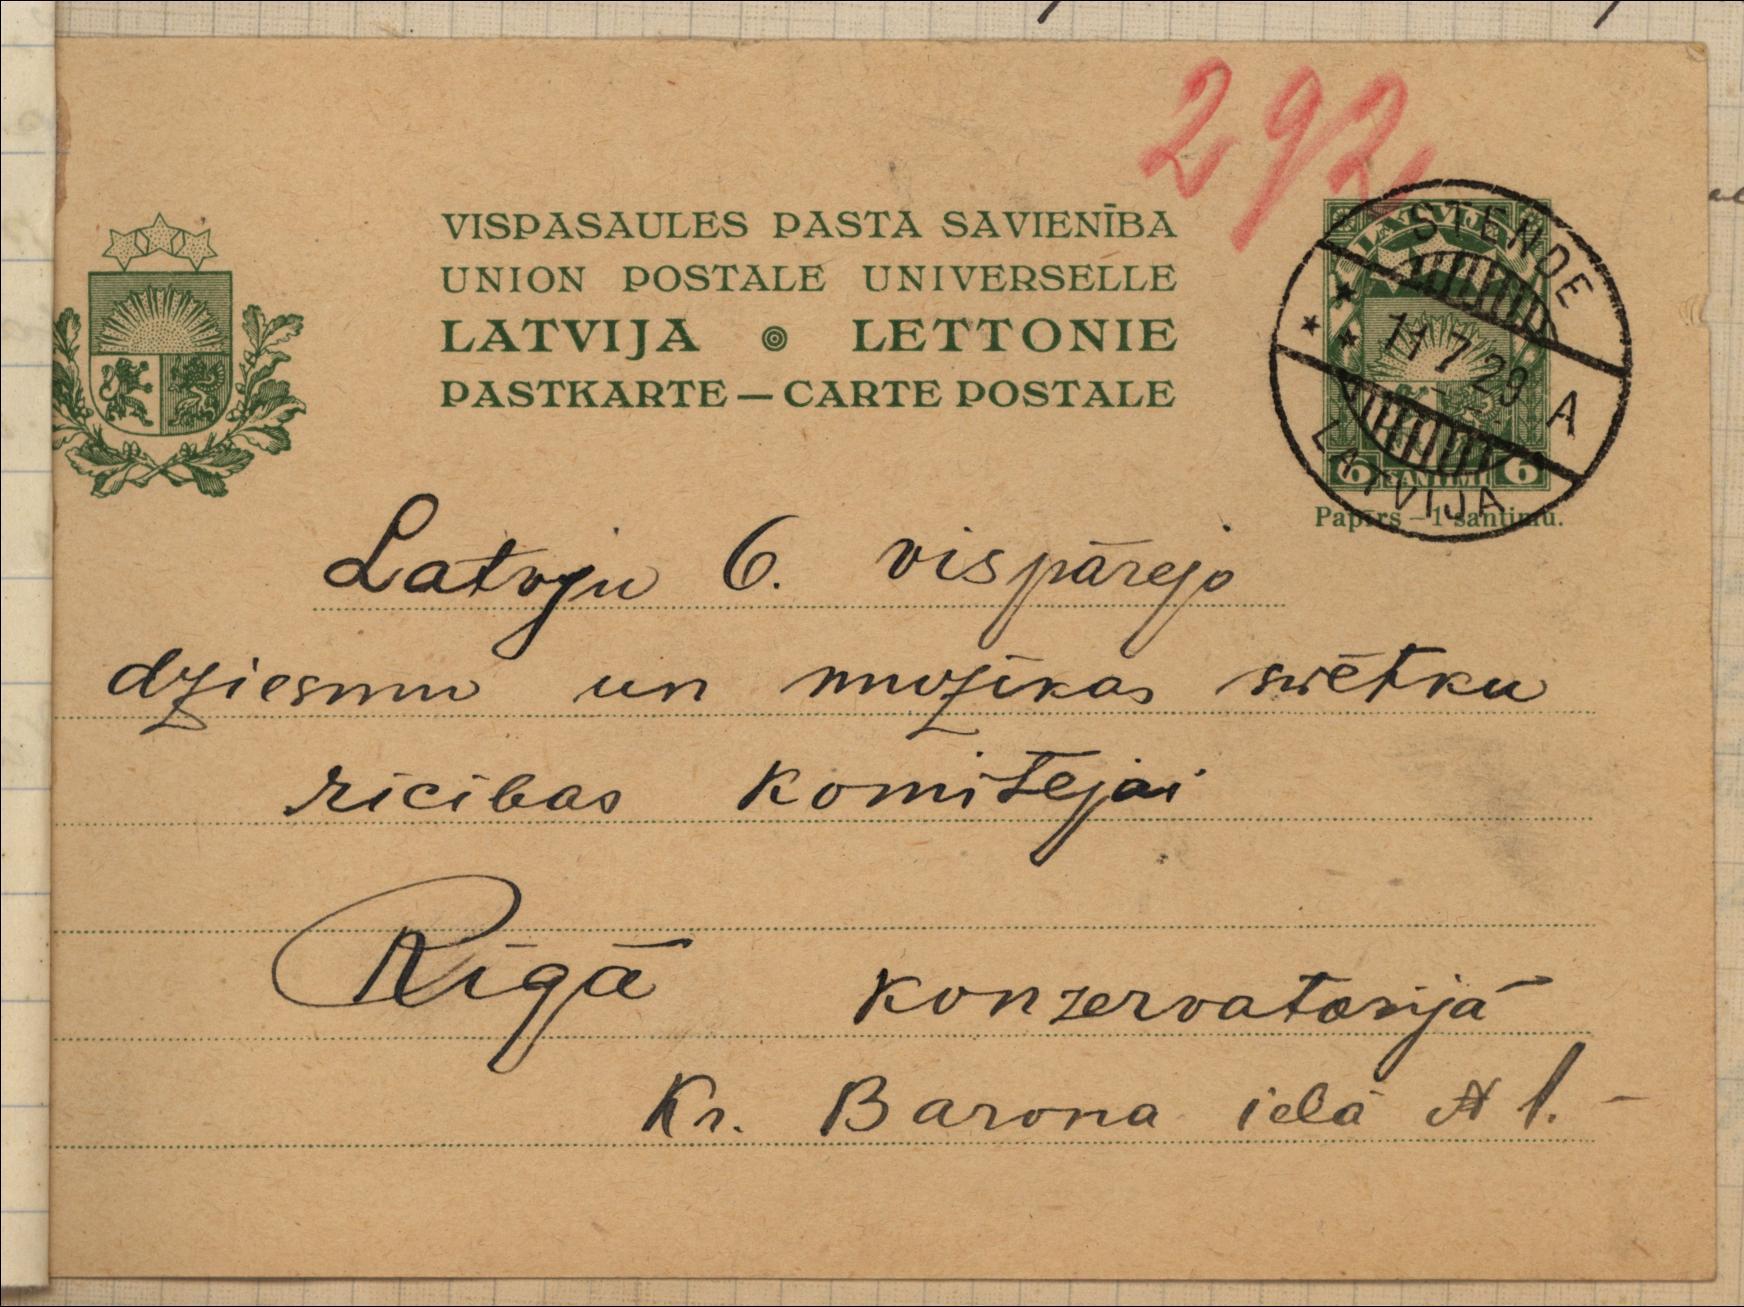 292
VISPASAULES PASTA SAVIENĪBA
UNION POSTALE UNIVERSELLE
LATVIJA LETTONIE
PASTKARTE — CARTE POSTALE
LATVIJA
STENDE
11 7 29 A
LATVIJA
6 SANTIMI 6
Papīrs – 1 santimu.
Latvju 6. vispārejo
dziesmu un muzīkas svētku
rīcības komitejai
Rīgā Konzervatorijā
Kr. Barona ielā № 1. –